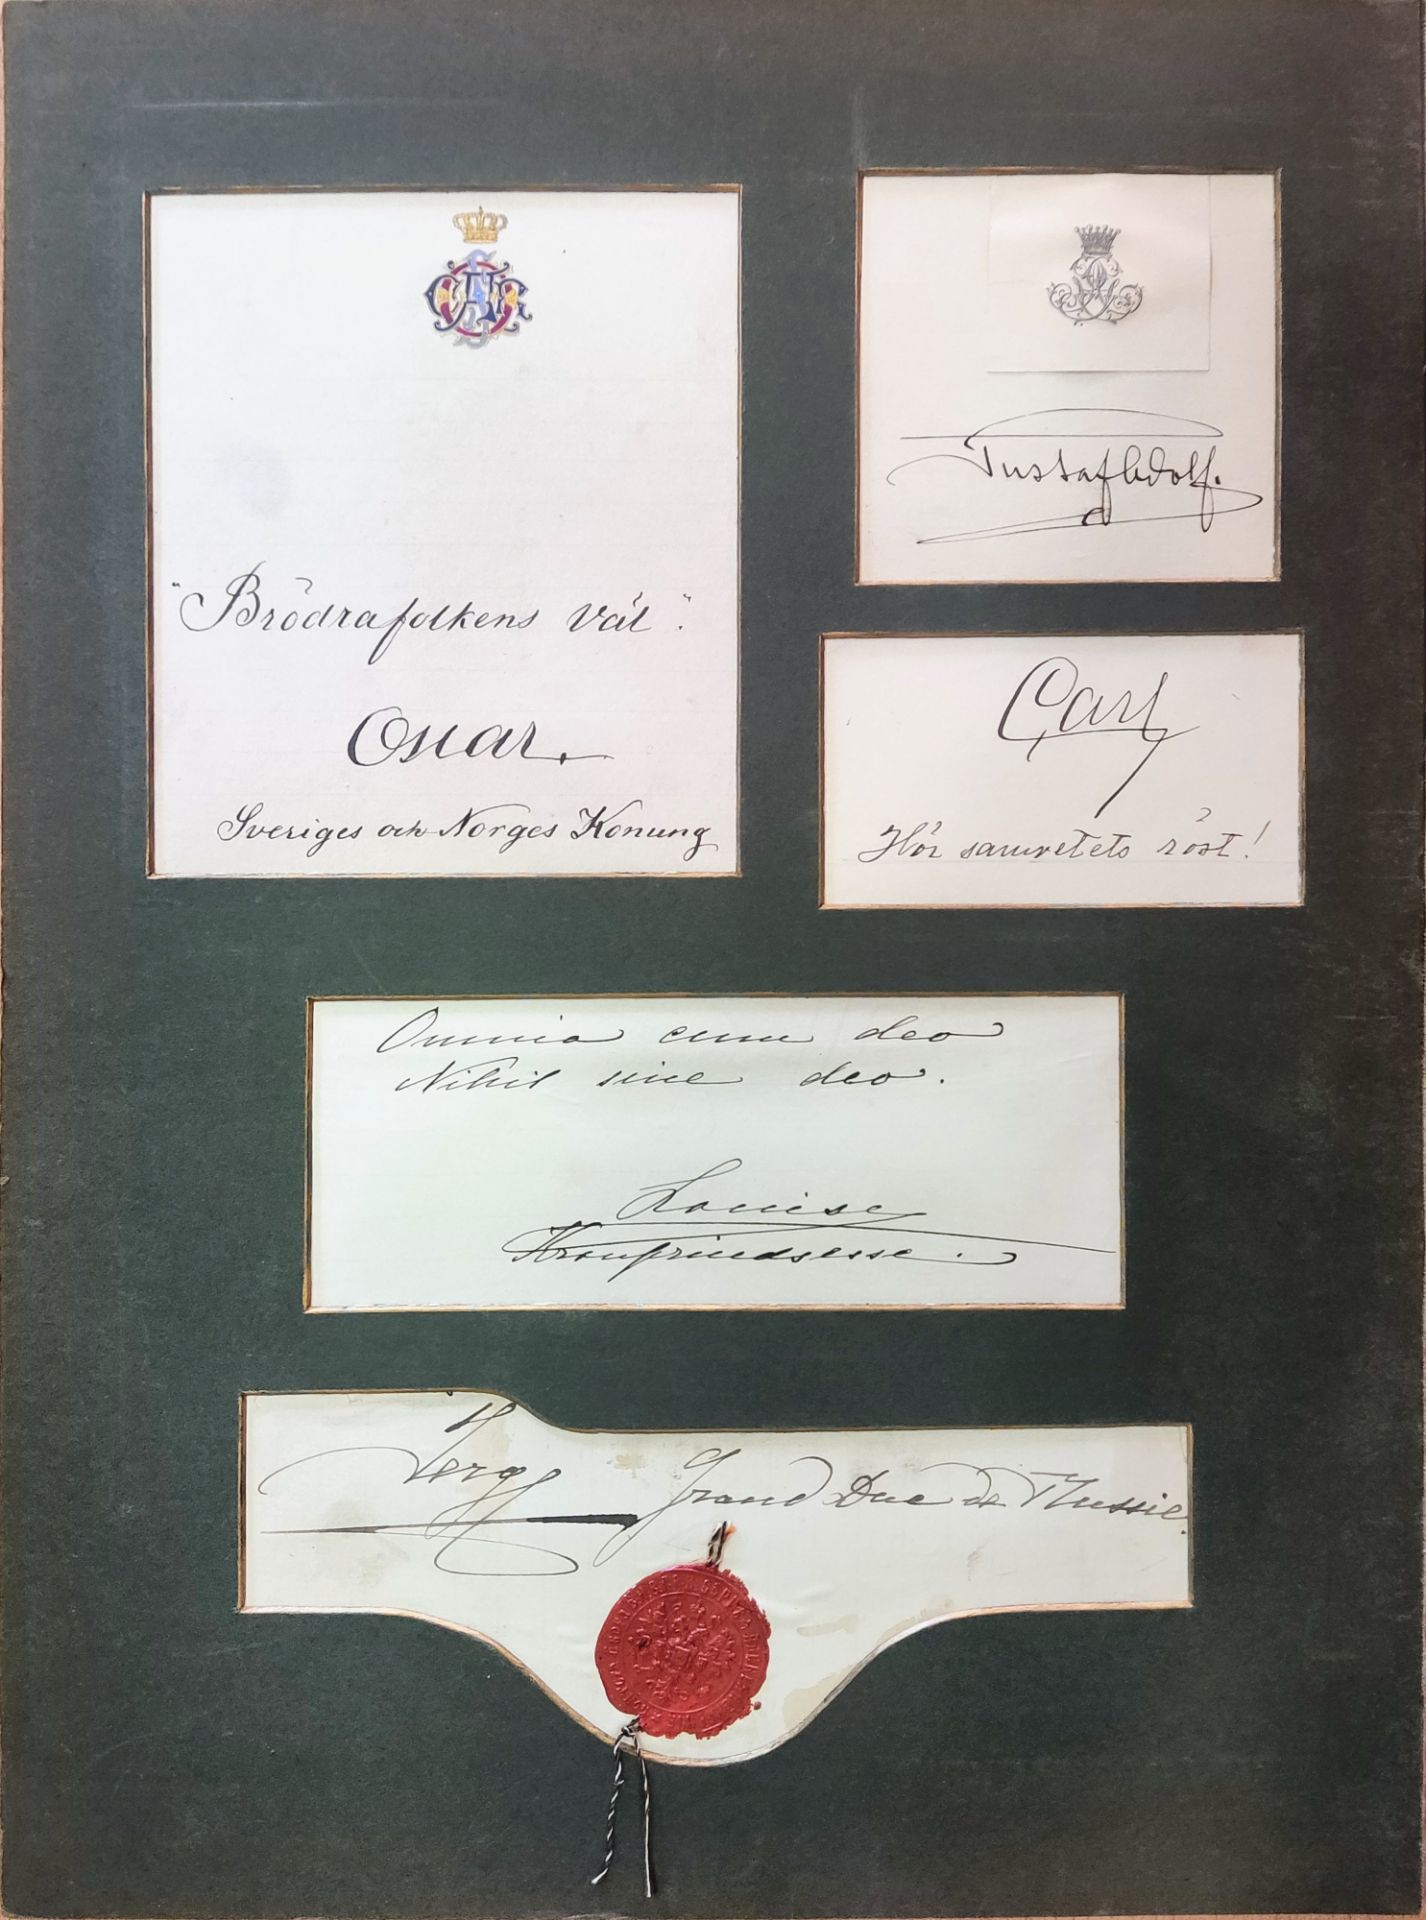 "Brödrafolkens väl".
Oscar.
Sveriges och Norges Konung
Gustaf Adolf.
Carl
Hör samvetets röst!
Omnia cum deo
Nihil sine deo.
Louise
Kronprindsesse.
Serge Grand Duc de Russie.